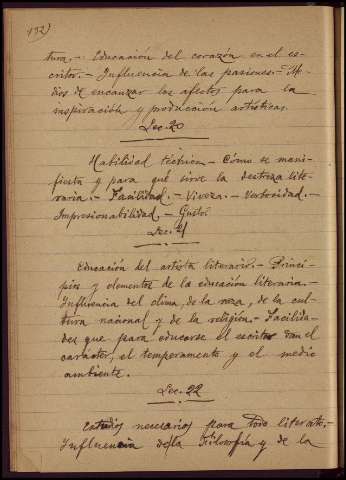 132)
tura.- Educación del corazón en el es-
critor.- Influencia de las pasiones.- Me-
dios de encauzar los afectos para la
inspiración y producción artísticas.
Lec. 20
Habilidad técnica.- Cómo se mani-
fiesta y para qué sirve la destreza lite-
raria.- Facilidad.- Viveza.- Verbosidad.-
Impresionabilidad.- Gusto.
Lec. 21
Educación del artista literario.- Princi-
pios y elementos de la educación literaria.-
Influencia del clima, de la raza, de la cul-
tura nacional y de la religión.- Facilida-
des que para educarse el escritor dan el
carácter, el temperamento y el medio
ambiente.
Lec. 22
Estudios necesarios para todo literato.-
Influencia de la Filosofía y de la